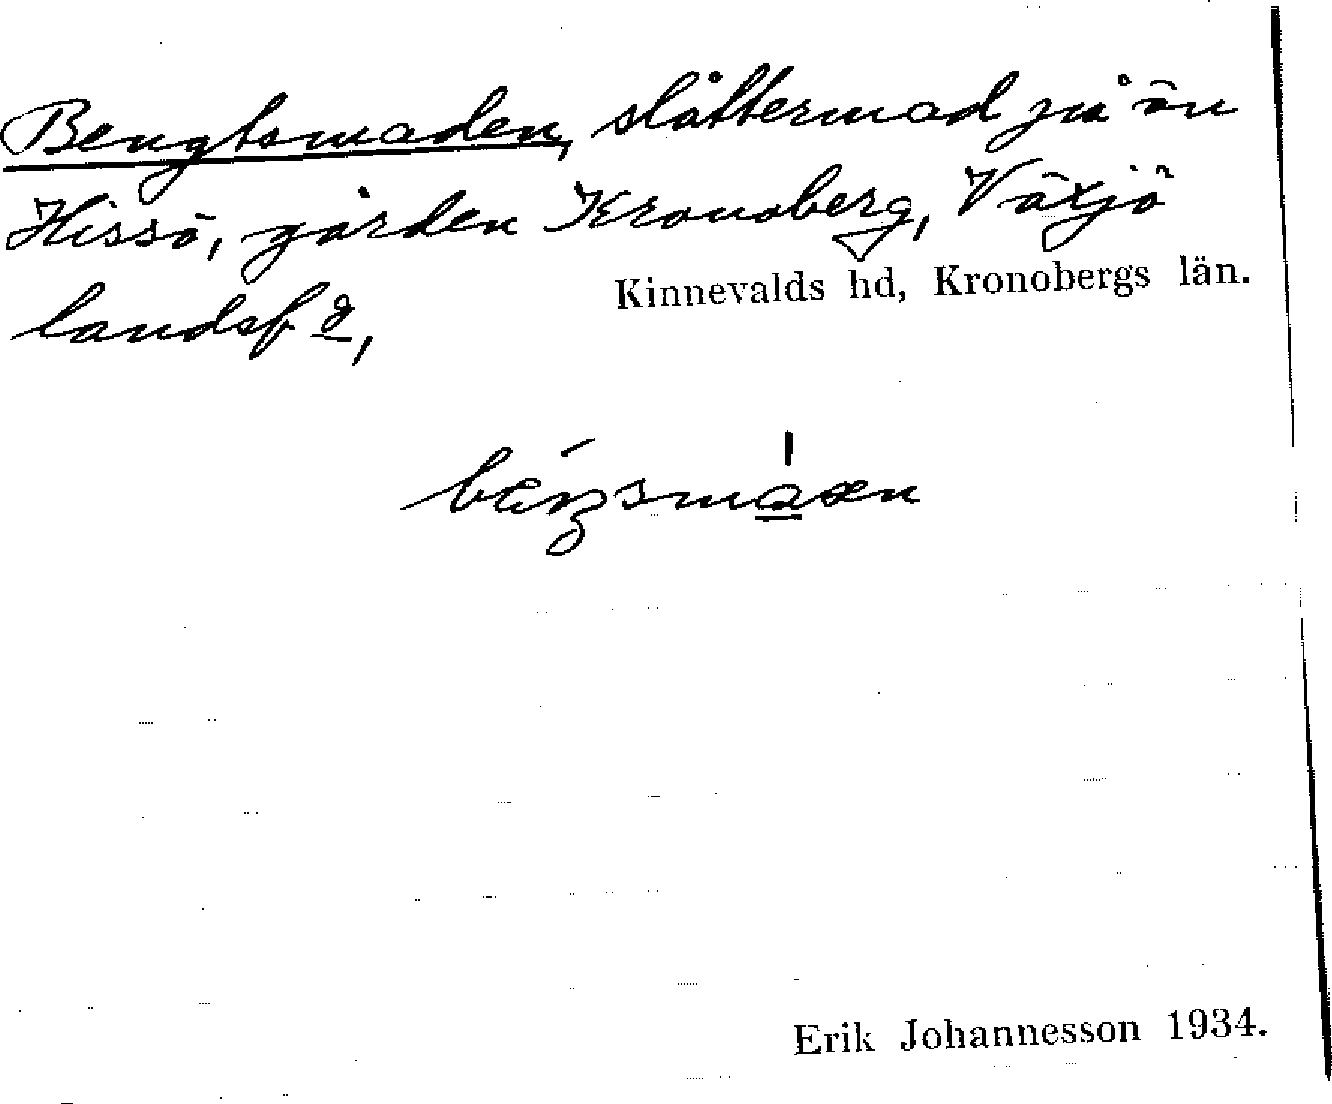 Bengtsmaden, slåttermad på ön
Hissö, gården Kronoberg, Växjö
landsf d,
Kinnevalds hd, Kronobergs län.
Erik Johannesson 1934.